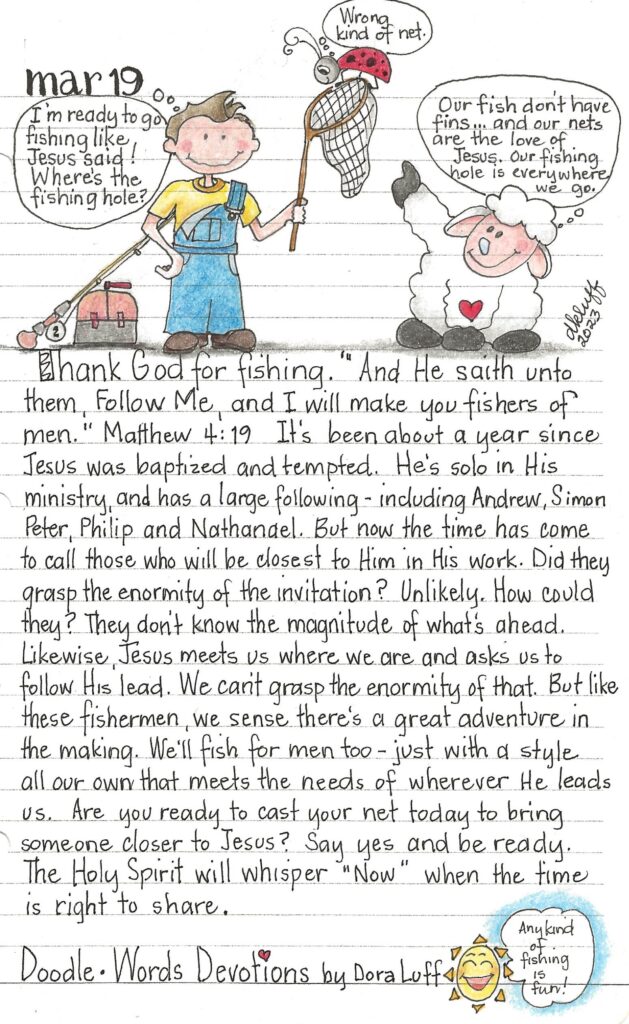 Wrong
kind of net.
mar 19
I'm ready to go
fishing like
Jesus said!
Where's the
fishing hole?
Our fish don't have
fins... and our nets
are the love of
Jesus. Our fishing
hole is everywhere
we go.
2
dkluff
2023
Thank God for fishing. "And He saith unto
them, Follow Me, and I will make you fishers of
men." Matthew 4:19 It's been about a year since
Jesus was baptized and tempted. He's solo in His
ministry, and has a large following - including Andrew, Simon
Peter, Philip and Nathanael. But now the time has come
to call those who will be closest to Him in His work. Did they
grasp the enormity of the invitation? Unlikely. How could
they? They don't know the magnitude of what's ahead.
Likewise, Jesus meets us where we are and asks us to
follow His lead. We can't grasp the enormity of that. But like
these fishermen, we sense there's a great adventure in
the making. We'll fish for men too - just with a style
all our own that meets the needs of wherever He leads
us. Are you ready to cast your net today to bring
someone closer to Jesus? Say yes and be ready.
The Holy Spirit will whisper "Now" when the time
is right to share.
Doodle • Words Devotions by Dora Luff
Any kind
of
fishing
is
fun!